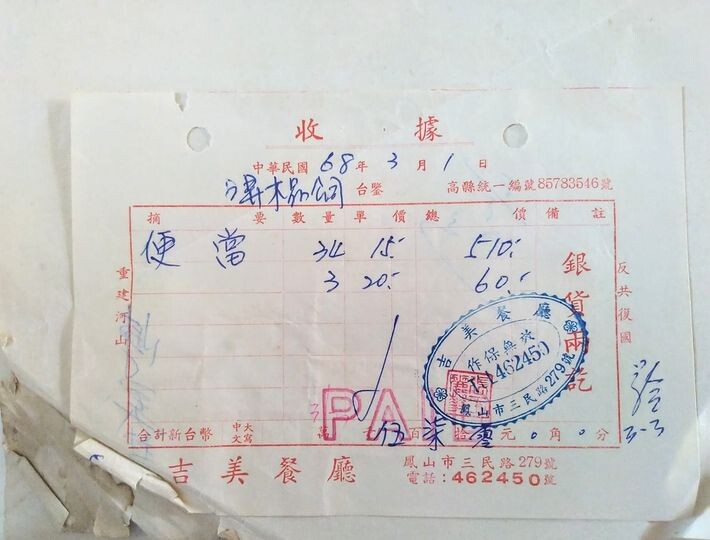 收據
中華民國 68年 3月 1日
木品公司 台鑒 高縣統一編號85783546號
摘要 數量 單價 總價 備註
便當 34 15.- 510.-
3 20.- 60.-
銀貨兩訖
重建河山
反共復國
吉美餐廳
作保無效
462450
鳳山市三民路279號
PAI
合計新台幣 中文大寫 萬 百 伍 柒 拾 零 元 0角 0分
3-3
吉美餐廳 鳳山市三民路279號
電話:462450號